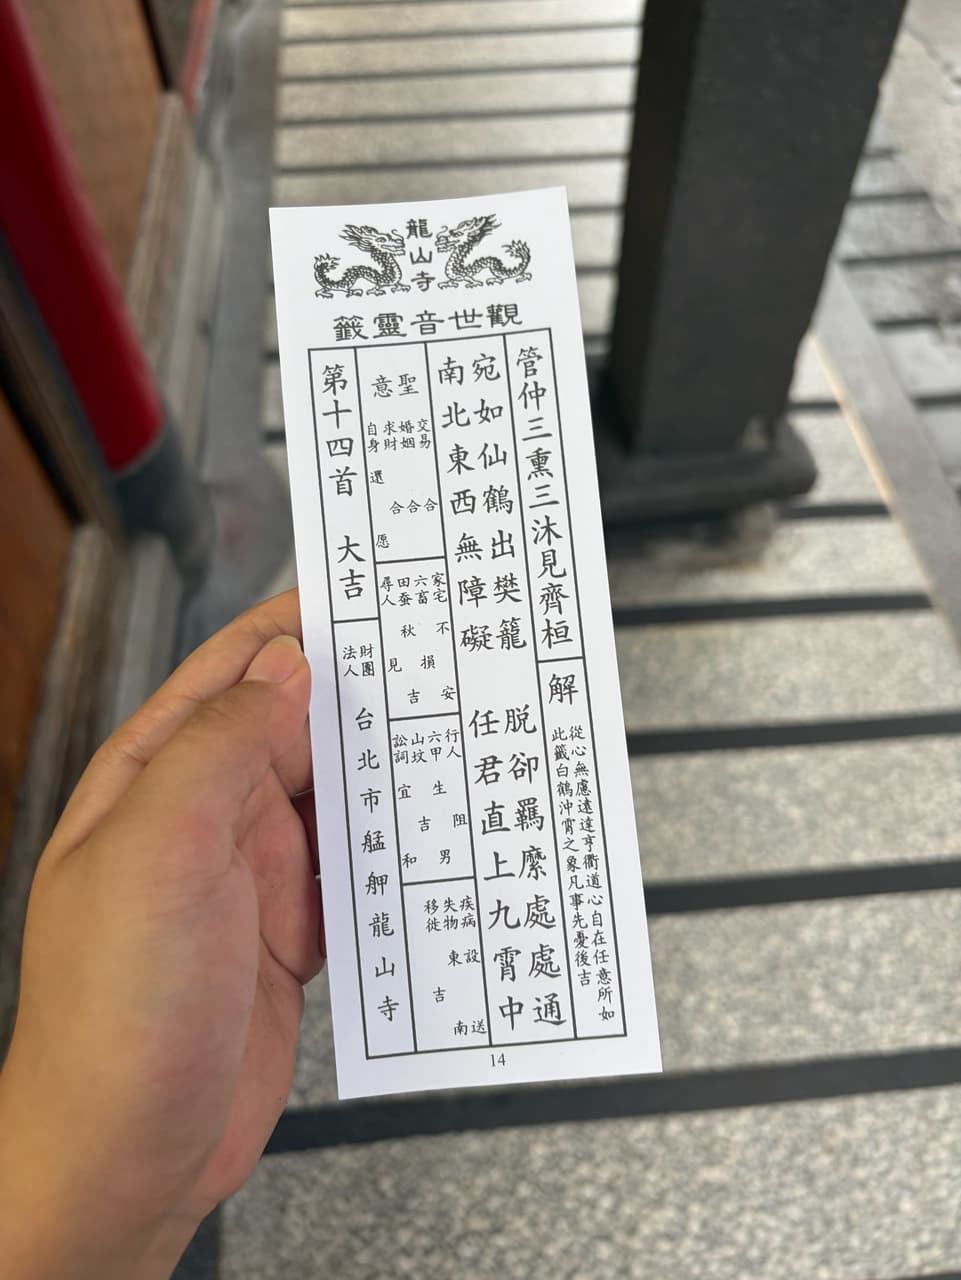 龍山寺
觀世音靈籤
管仲三熏三沐見齊桓
解
從心無慮遠達亨衢道心自在任意所如
此籤白鶴沖霄之象凡事先憂後吉
宛如仙鶴出樊籠　脱卻羈縻處處通
南北東西無障礙　任君直上九霄中
聖意
交易 合
婚姻 合
求財 合
自身 還愿
家宅 不安
六畜 損
田蚕 秋吉
尋人 見
行人 阻
六甲 生男
山坟 吉
訟詞 宜和
疾病 設送
失物 東南
移徙 吉
第十四首　大吉
財團法人
台北市艋舺龍山寺
14